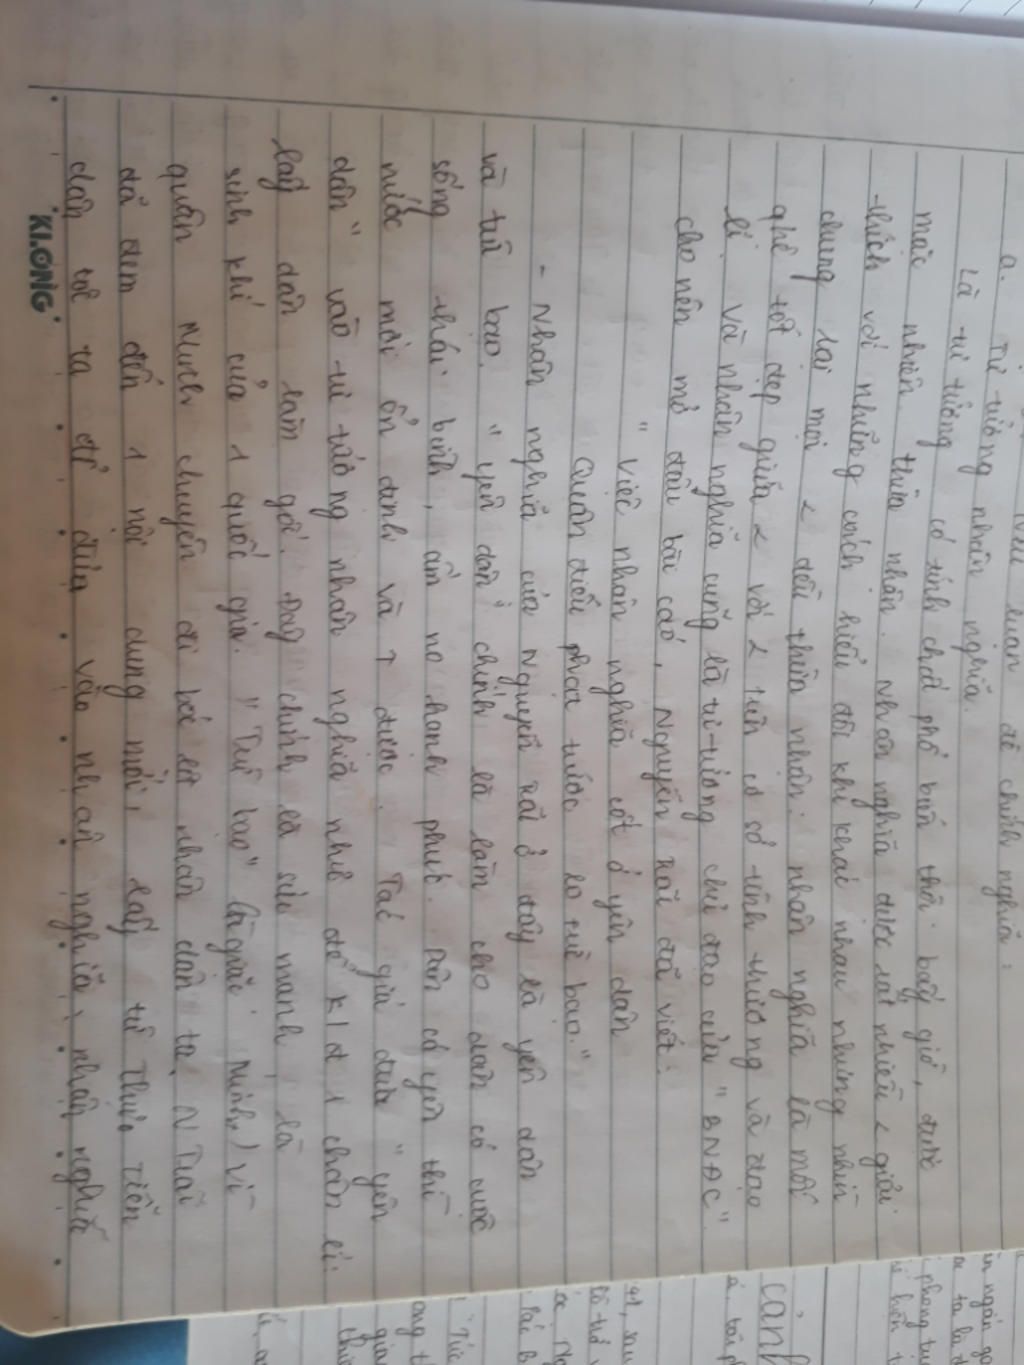 luận đề chính nghĩa:
a. Tư tưởng nhân nghĩa.
Là tư tưởng có tính chất phổ biến thời bấy giờ, được
mặc nhiên thừa nhận. Nhân nghĩa được rất nhiều < giải
thích với những cách hiểu đôi khi khác nhau nhưng nhìn
chung lại mọi < đều thừa nhận: nhân nghĩa là mối
qhệ tốt đẹp giữa < với < trên cơ sở tình thương và đạo
lí. Và nhân nghĩa cũng là tư tưởng chủ đạo của "BNĐC"
cho nên mở đầu bài cáo, Nguyễn Trãi đã viết.
" Việc nhân nghĩa cốt ở yên dân
Quân điếu phạt trước lo trừ bạo."
- Nhân nghĩa của Nguyễn Trãi ở đây là yên dân
và trừ bạo. "yên dân" chính là làm cho dân có cuộc
sống thái bình, ấm no hạnh phúc. Dân có yên thì
nước mới ổn định và ↑ được. Tác giả đưa "yên
dân" vào tư tưởng nhân nghĩa như để KĐ 1 chân lí:
lấy dân làm gốc. Đây chính là sức mạnh, là
sinh khí của 1 quốc gia. "Trừ bạo" (giặc Minh) vì
quân Minh chuyên đi bóc lột nhân dân ta. N Trãi
đã đem đến 1 nội dung mới, lấy từ thực tiễn
dân tộc ta để đưa vào nhân nghĩa, nhân nghĩa
KLONG
cảnh